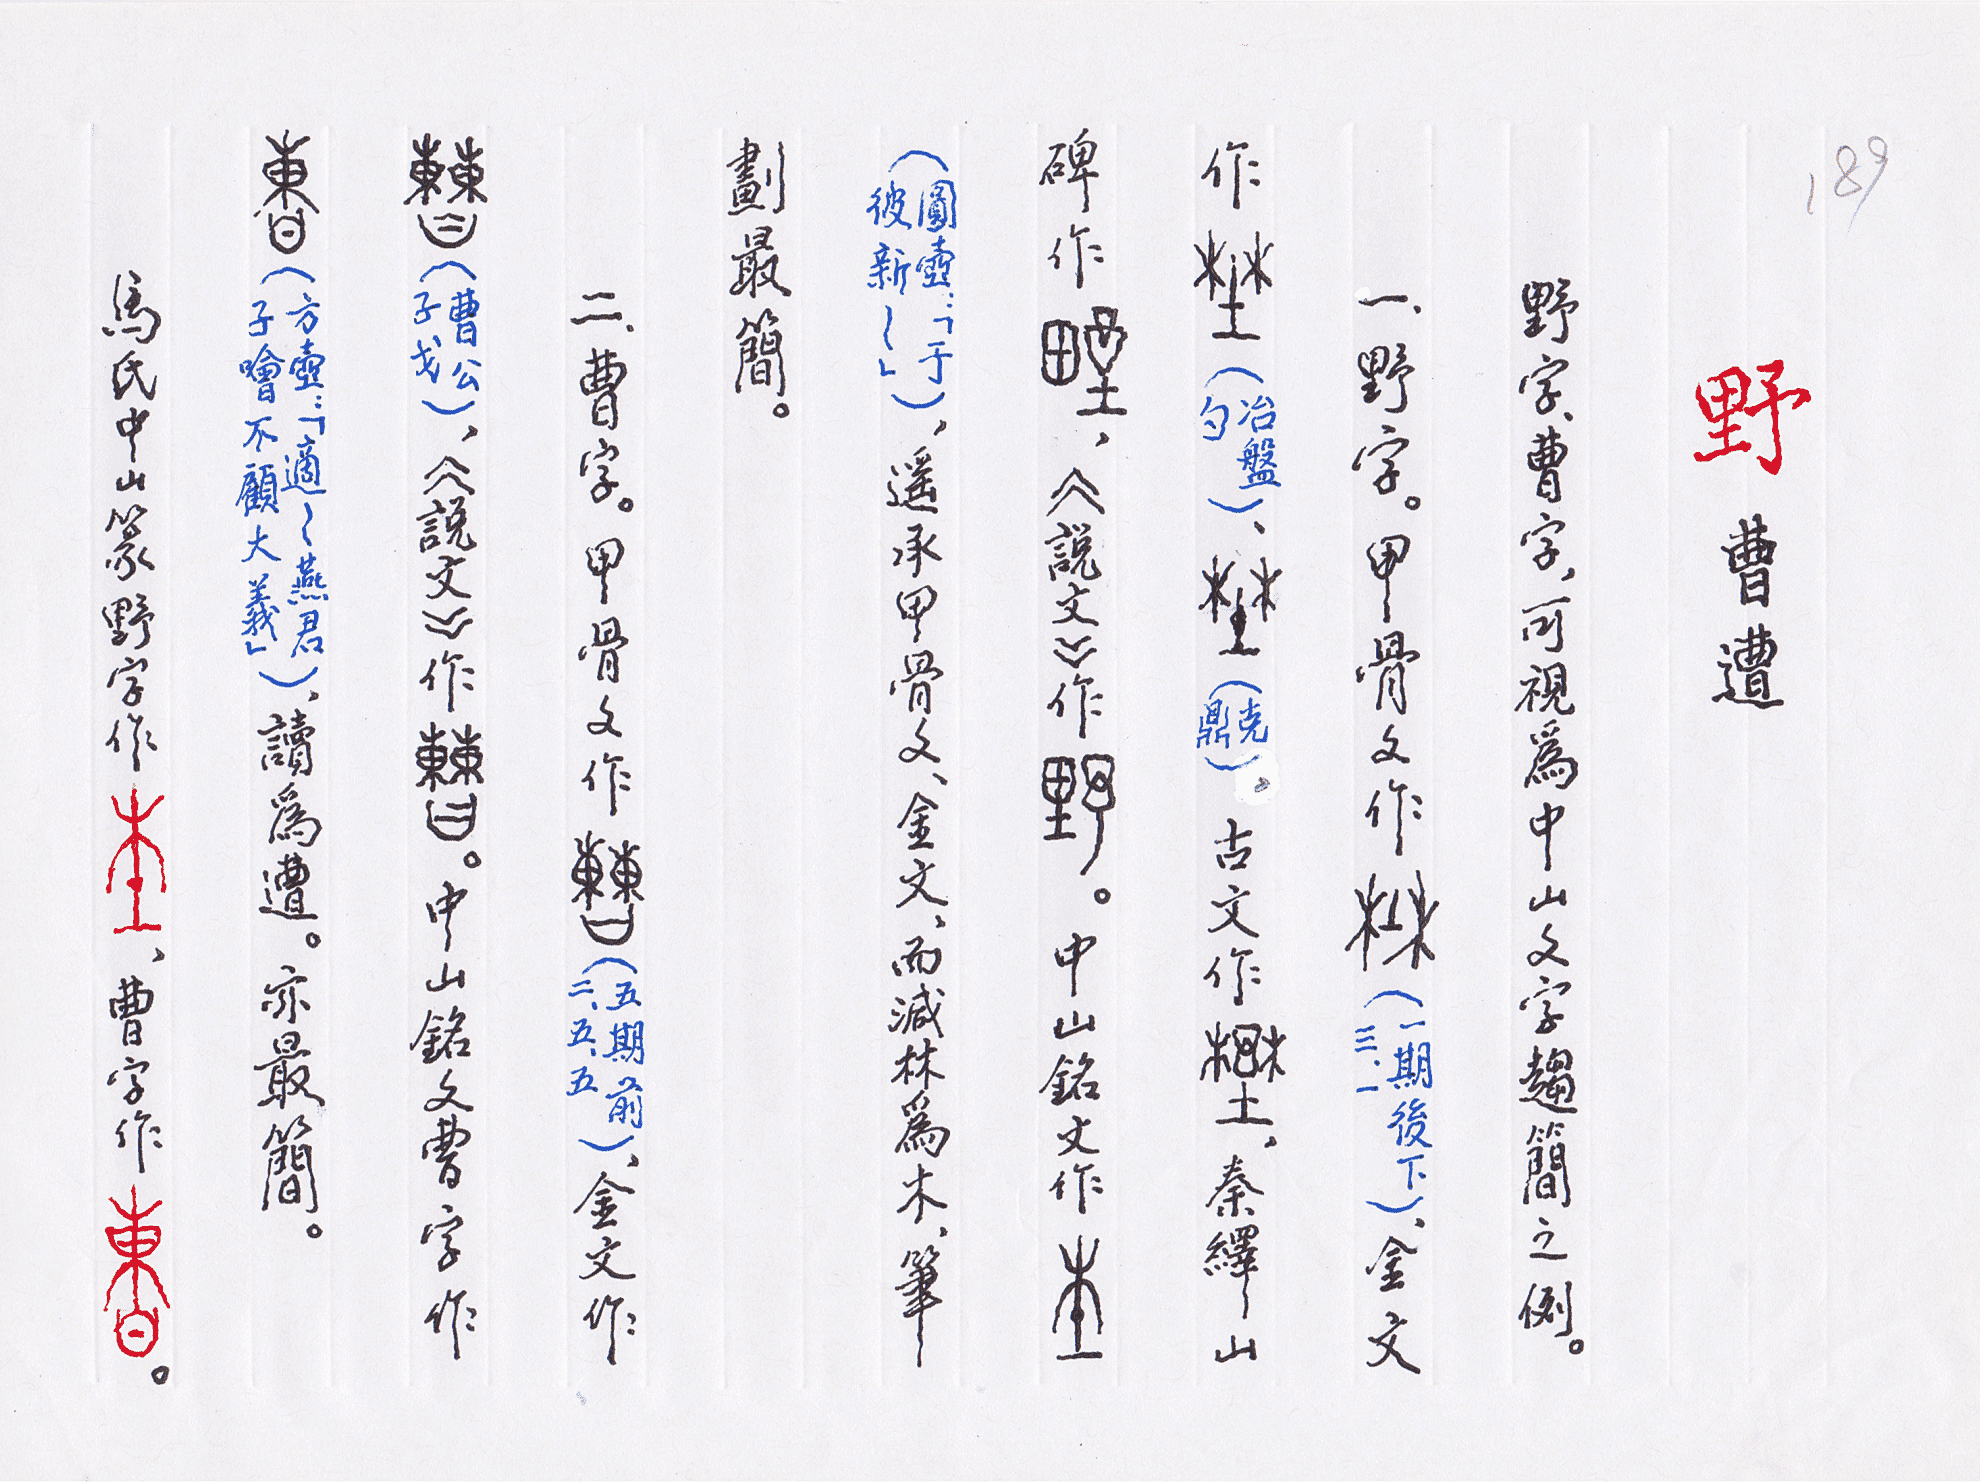 189
野 曹 遭
野字、曹字，可視爲中山文字趨簡之例。
一、野字。甲骨文作（一期後下三、一）、金文
作（冶盤勺）、（克鼎）。古文作，秦繹山
碑作，《説文》作。中山銘文作
（圓壺：「于彼新～」），遥承甲骨文、金文，而減林爲木，筆
劃最簡。
二、曹字。甲骨文作（五期前二、五、五），金文作
（曹公子戈），《説文》作。中山銘文曹字作
（方壺：「適～燕君子噲不顧大義」），讀爲遭。亦最簡。
馬氏中山篆野字作，曹字作。